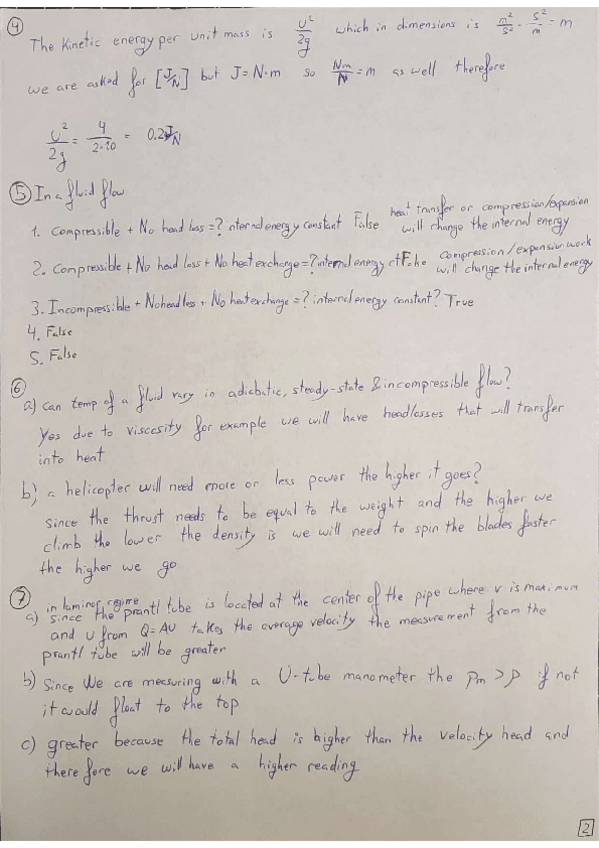 ④ The Kinetic energy per unit mass is U²/2g which in dimensions is m²/s² · s²/m = m
we are asked for [J/N] but J = N·m so Nm/N = m as well therefore
U²/2g = 4/2·20 = 0.2 J/N
⑤ In a fluid flow
1. Compressible + No head loss =? nternal energy constant False heat transfer or compression/expansion
will change the internal energy
2. Compressible + No head loss + No heat exchange =? internal energy ct False compression/expansion work
will change the internal energy
3. Incompressible + No head loss + No heat exchange =? internal energy constant? True
4. False
5. False
⑥
a) can temp of a fluid vary in adiabatic, steady-state & incompressible flow?
Yes due to viscosity for example we will have headlosses that will transfer
into heat
b) a helicopter will need more or less power the higher it goes?
Since the thrust needs to be equal to the weight and the higher we
climb the lower the density is we will need to spin the blades faster
the higher we go
⑦ in laminar regime
a) since the prantl tube is located at the center of the pipe where v is maximum
and U from Q=AU takes the average velocity the measurement from the
prantl tube will be greater
b) Since we are measuring with a U-tube manometer the ρm > ρ if not
it would float to the top
c) greater because the total head is higher than the velocity head and
there fore we will have a higher reading
2